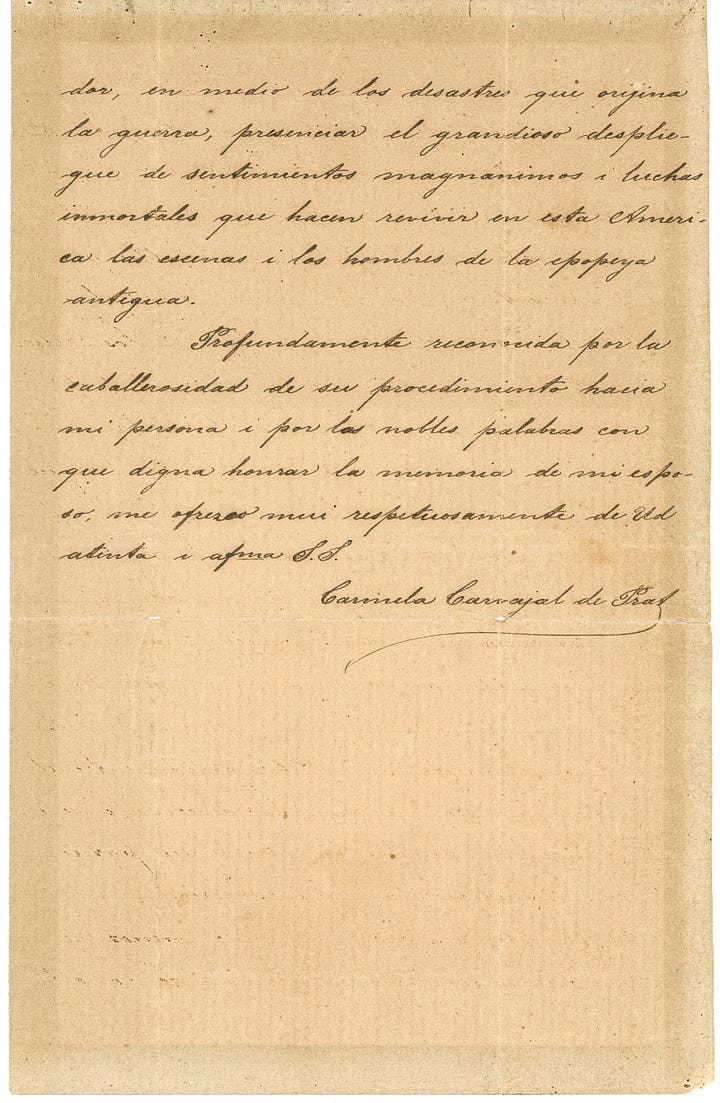 dor, en medio de los desastres que orijina
la guerra, presenciar el grandioso desplie-
gue de sentimientos magnánimos i luchas
inmortales que hacen revivir en esta Améri-
ca las escenas i los hombres de la epopeya
antigua.
Profundamente reconocida por la
caballerosidad de su procedimiento hacia
mi persona i por las nobles palabras con
que digna honrar la memoria de mi espo-
so, me ofrezco mui respetuosamente de Ud
atenta i afma S.S.
Carmela Carvajal de Prat